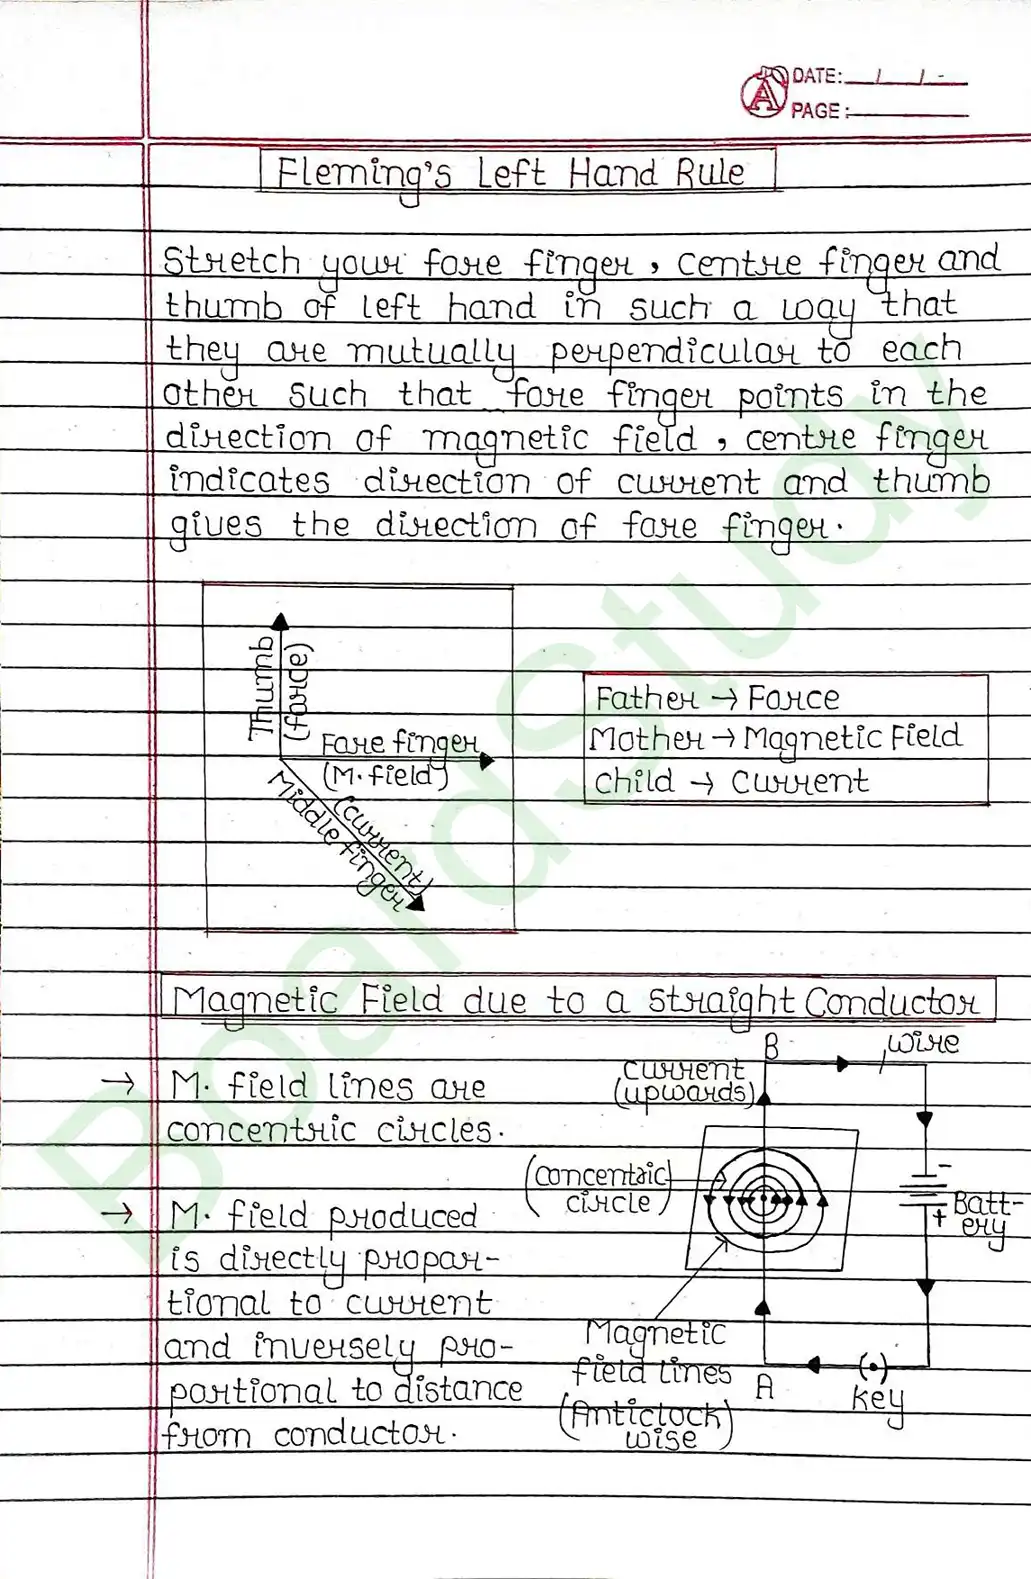 DATE: / / -
PAGE:
Fleming's Left Hand Rule
Stretch your fore finger, centre finger and
thumb of left hand in such a way that
they are mutually perpendicular to each
other such that fore finger points in the
direction of magnetic field, centre finger
indicates direction of current and thumb
gives the direction of fore finger.
Thumb
(force)
Fore finger
(M. field)
(current)
Middle finger
Father → Force
Mother → Magnetic Field
Child → Current
Magnetic Field due to a Straight Conductor
→ M. field lines are
concentric circles.
→ M. field produced
is directly propor-
tional to current
and inversely pro-
portional to distance
from conductor.
B
wire
current
(upwards)
(concentric
circle)
-
+
Batt-
ery
Magnetic
field lines
(Anticlock
wise)
A
(•)
Key
BoardStudy